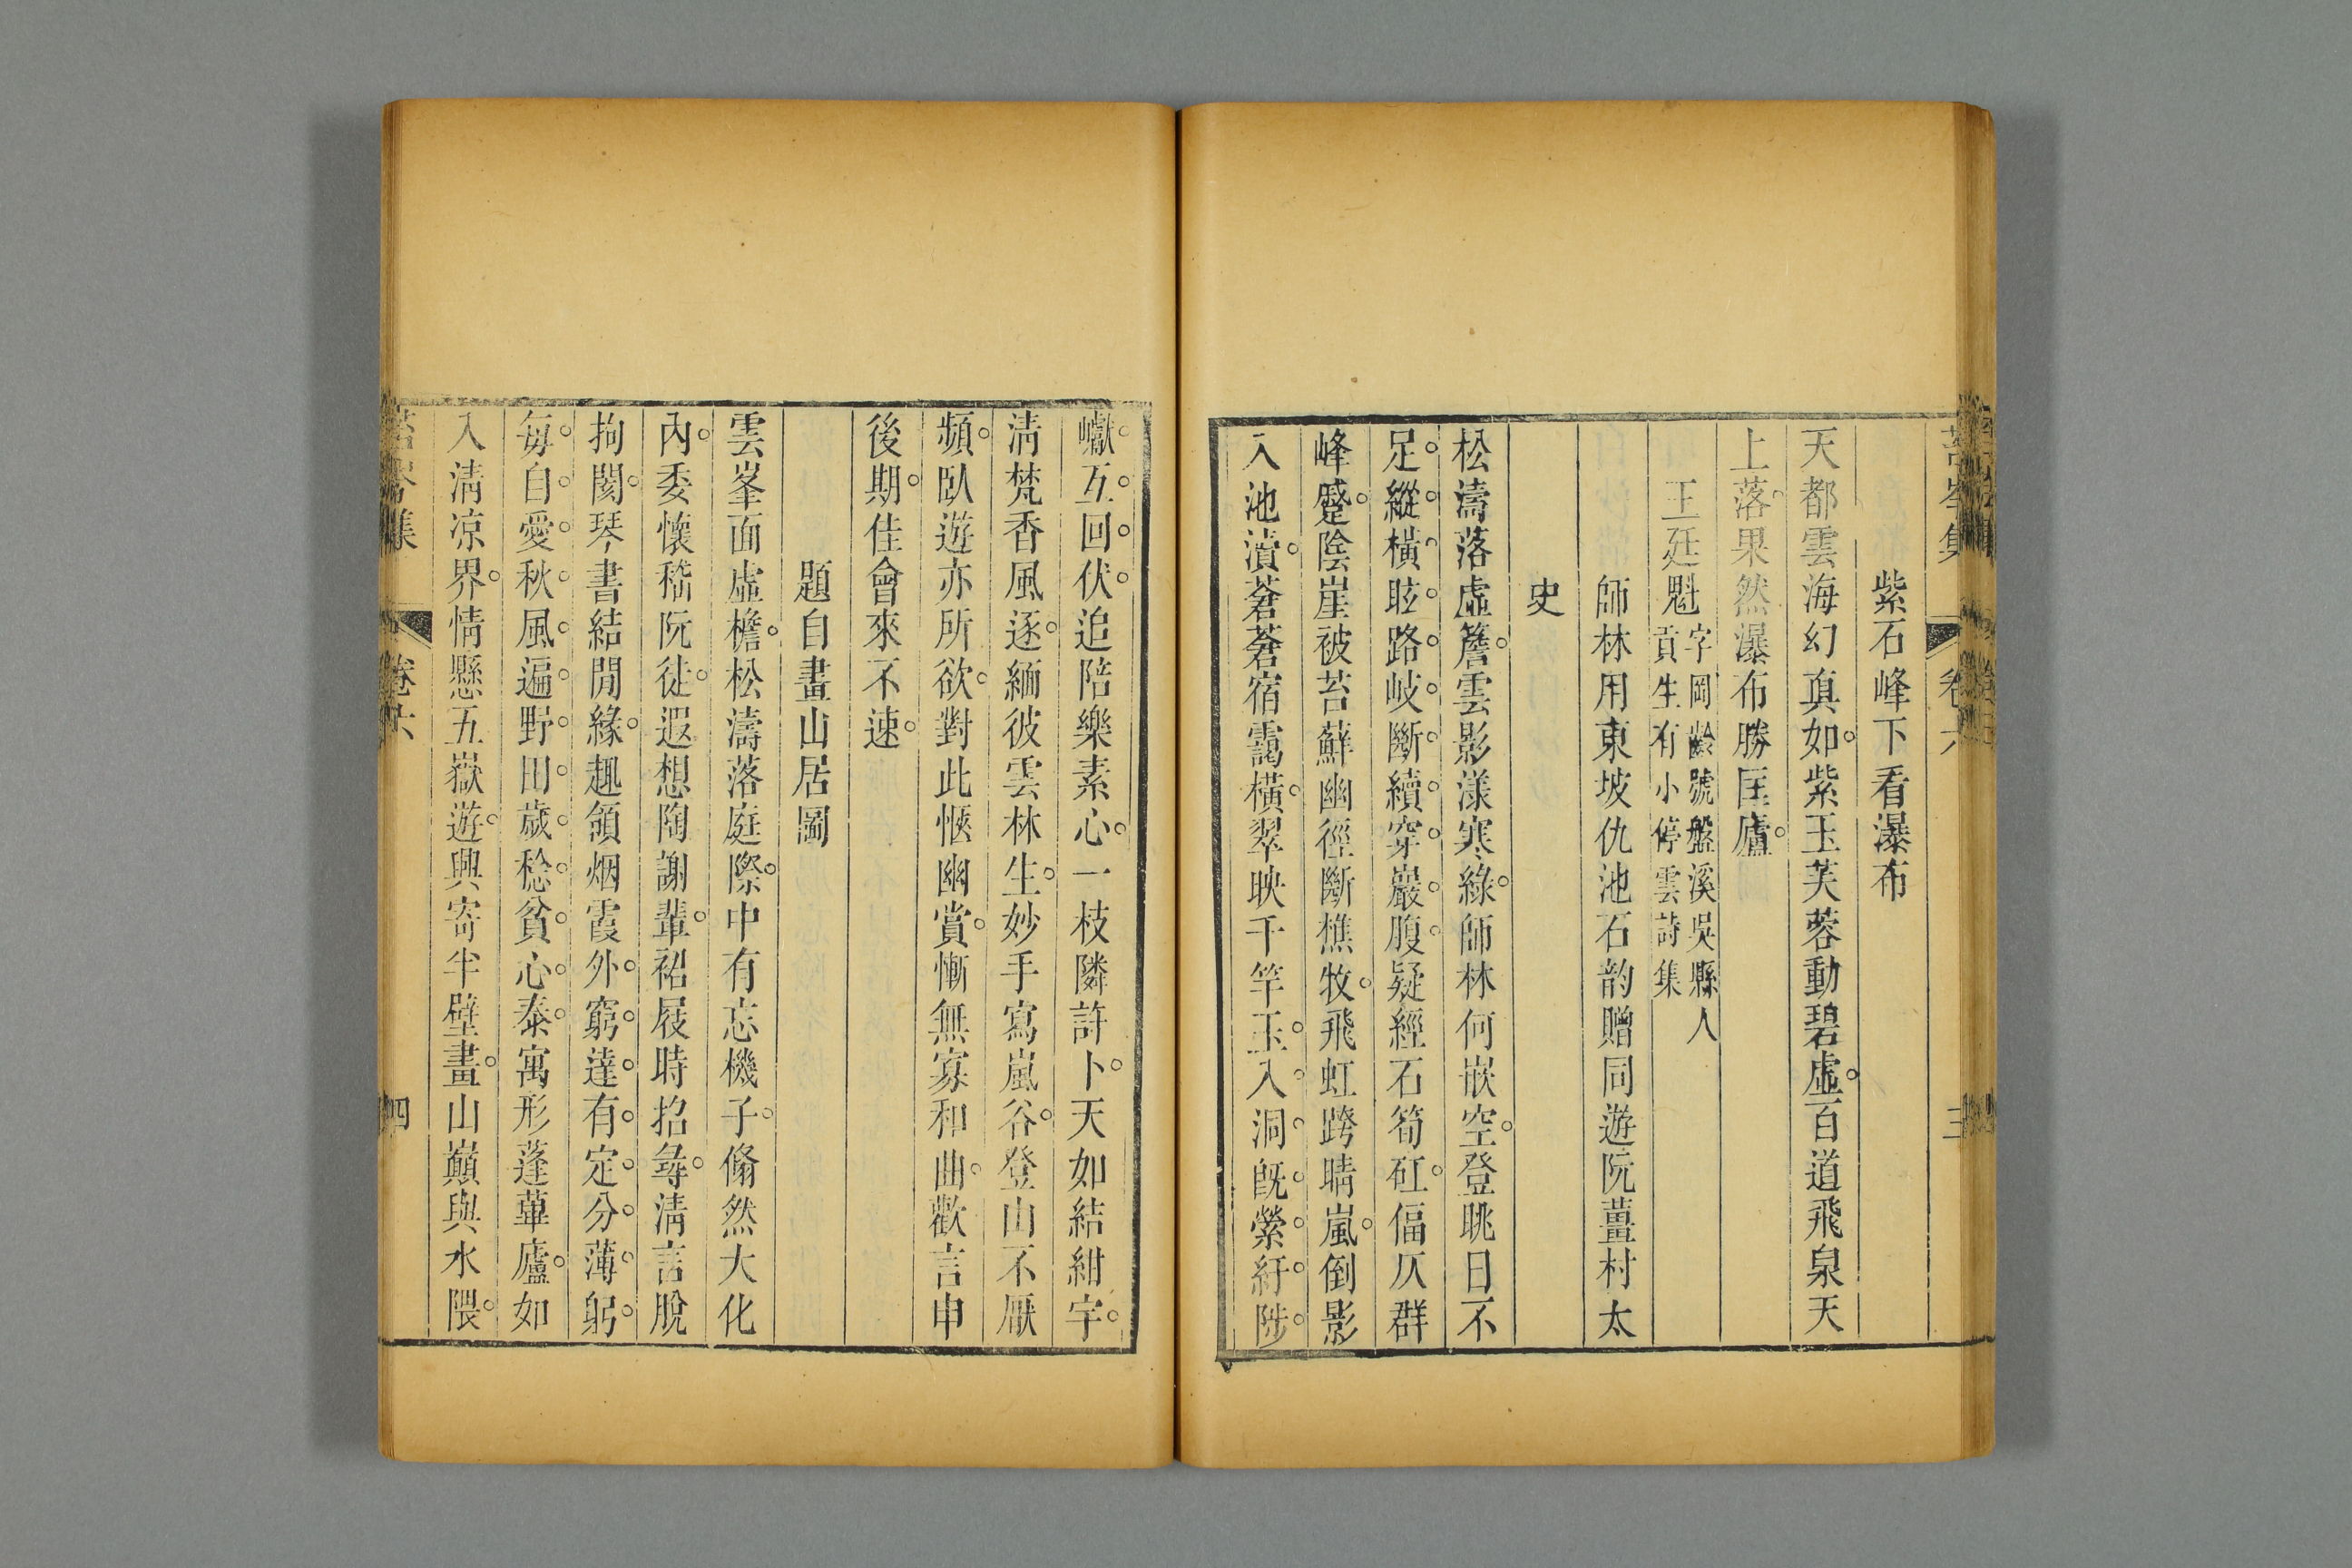 苔岑集　卷六　三
紫石峰下看瀑布
天都雲海幻真如紫玉芙蓉動碧虛百道飛泉天
上落果然瀑布勝匡廬
王廷魁
字岡齡號盤溪吳縣人
貢生有小停雲詩集
師林用東坡仇池石韵贈同遊阮薑村太
史
松濤落虛簷雲影漾寒綠師林何嵌空登眺日不
足縱橫眩路岐斷續穿巖腹疑經石筍矼偪仄群
峰蹙陰崖被苔蘚幽徑斷樵牧飛虹跨晴嵐倒影
入池瀆蒼蒼宿靄橫翠映千竿玉入洞既縈紆陟
巘互回伏追陪樂素心一枝隣許卜天如結紺宇
淸梵香風逐緬彼雲林生妙手寫嵐谷登山不厭
頻臥遊亦所欲對此愜幽賞慚無寡和曲歡言申
後期佳會來不速
題自畫山居圖
雲峯面虛檐松濤落庭際中有忘機子翛然大化
內委懷嵇阮徒遐想陶謝輩祒屐時招尋淸言脫
拘閡琴書結閒緣趣領烟霞外窮達有定分薄躬
每自愛秋風遍野田歲稔貧心泰寓形蓬蓽廬如
入淸凉界情懸五嶽遊興寄半壁畫山巔與水隈
苔岑集　卷六　四